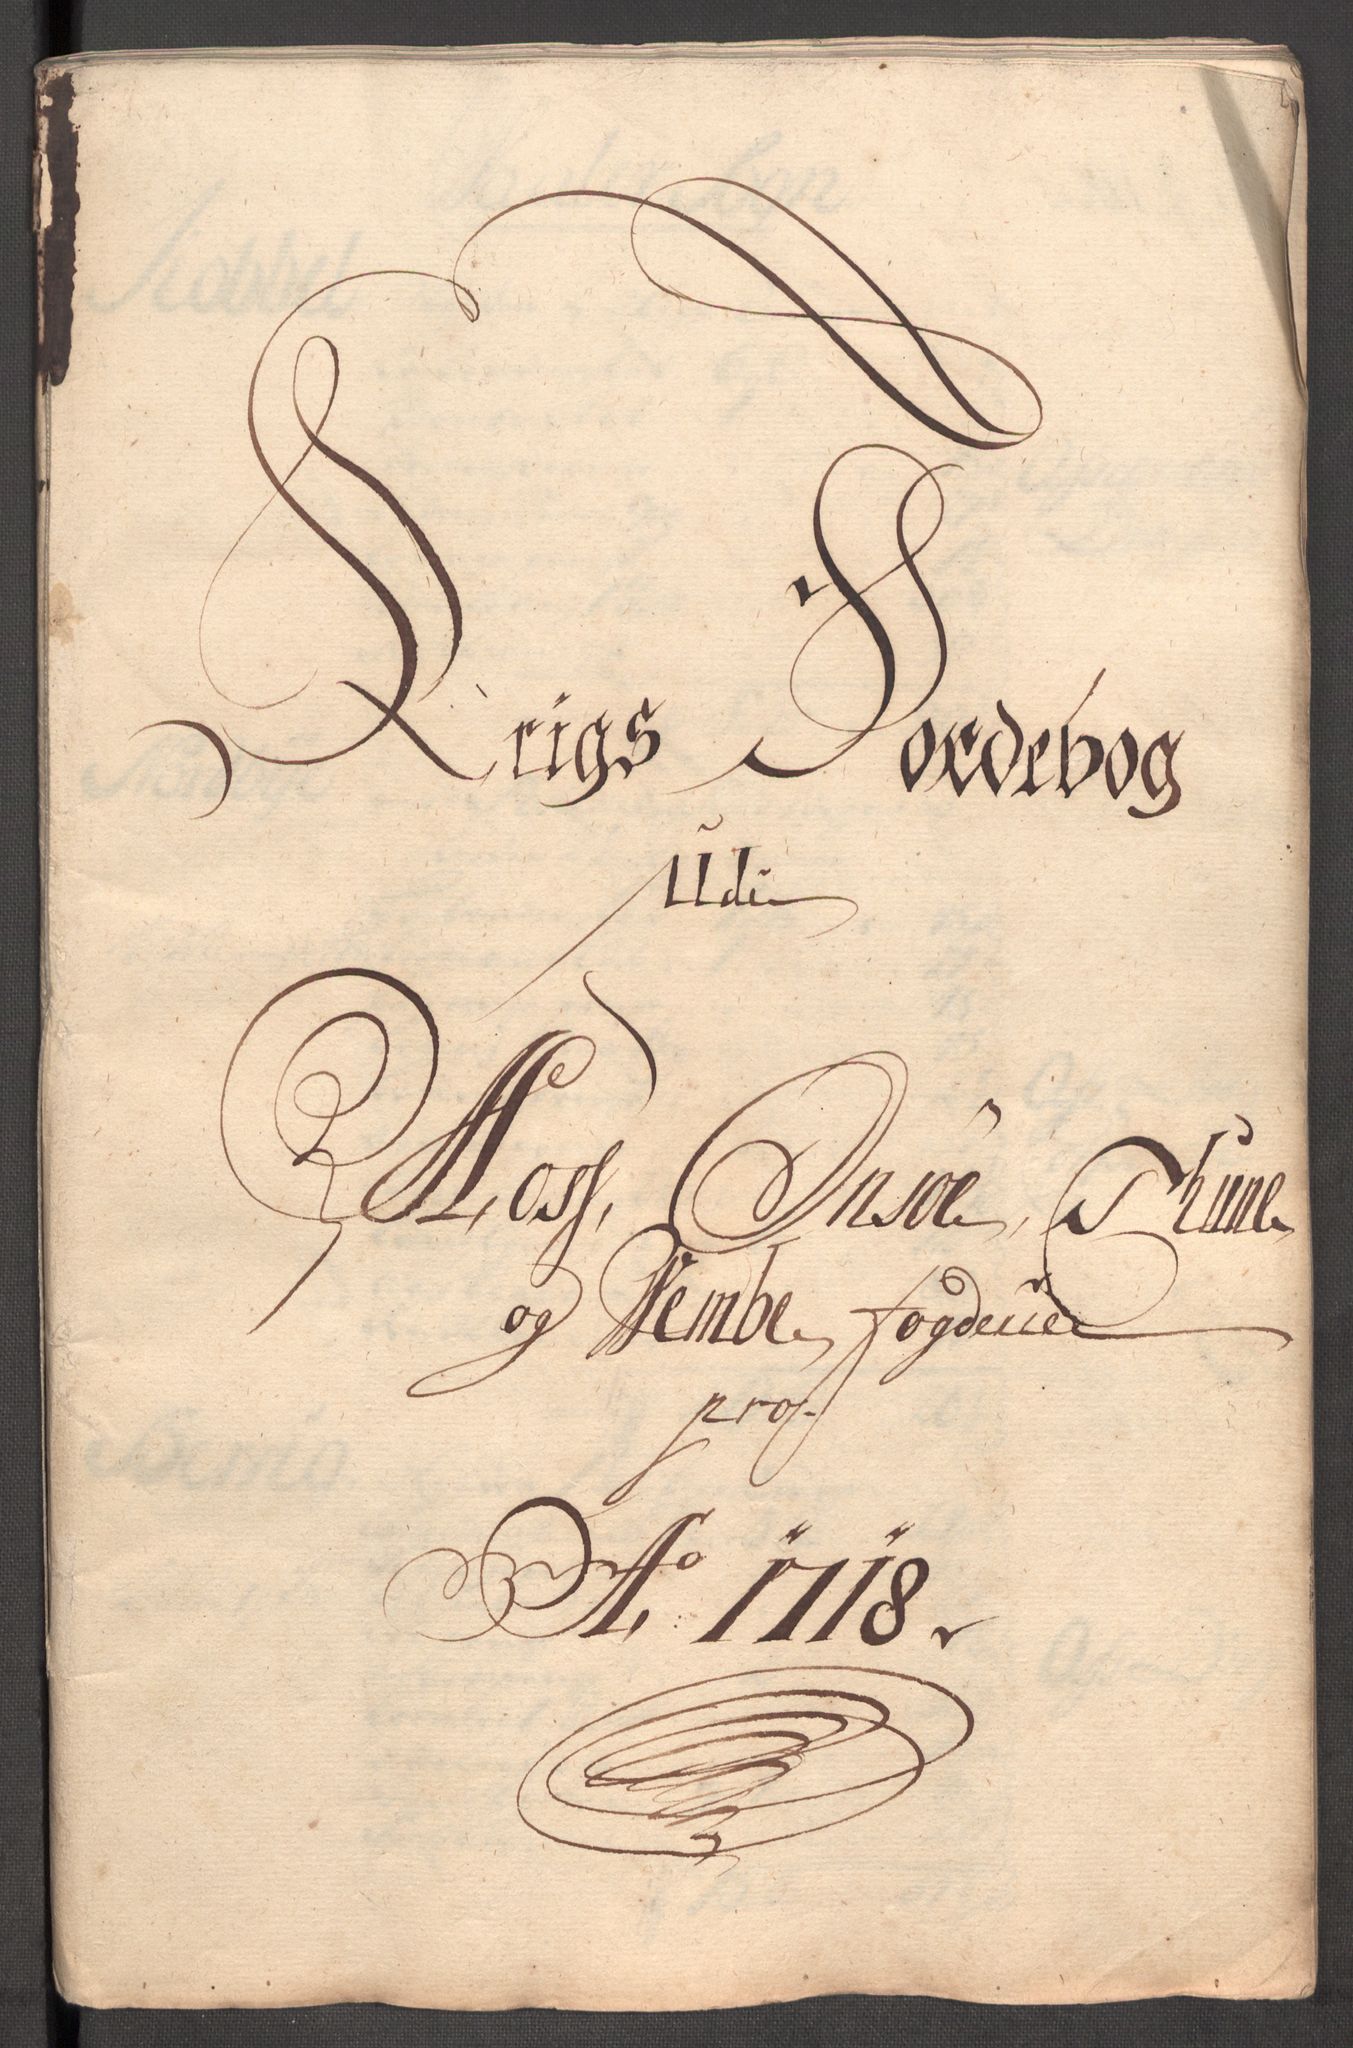 Krigs Jordebog
Udi
Moss, Onsöe, Thune
og Wembe fogderier
pro
Ao 1718.